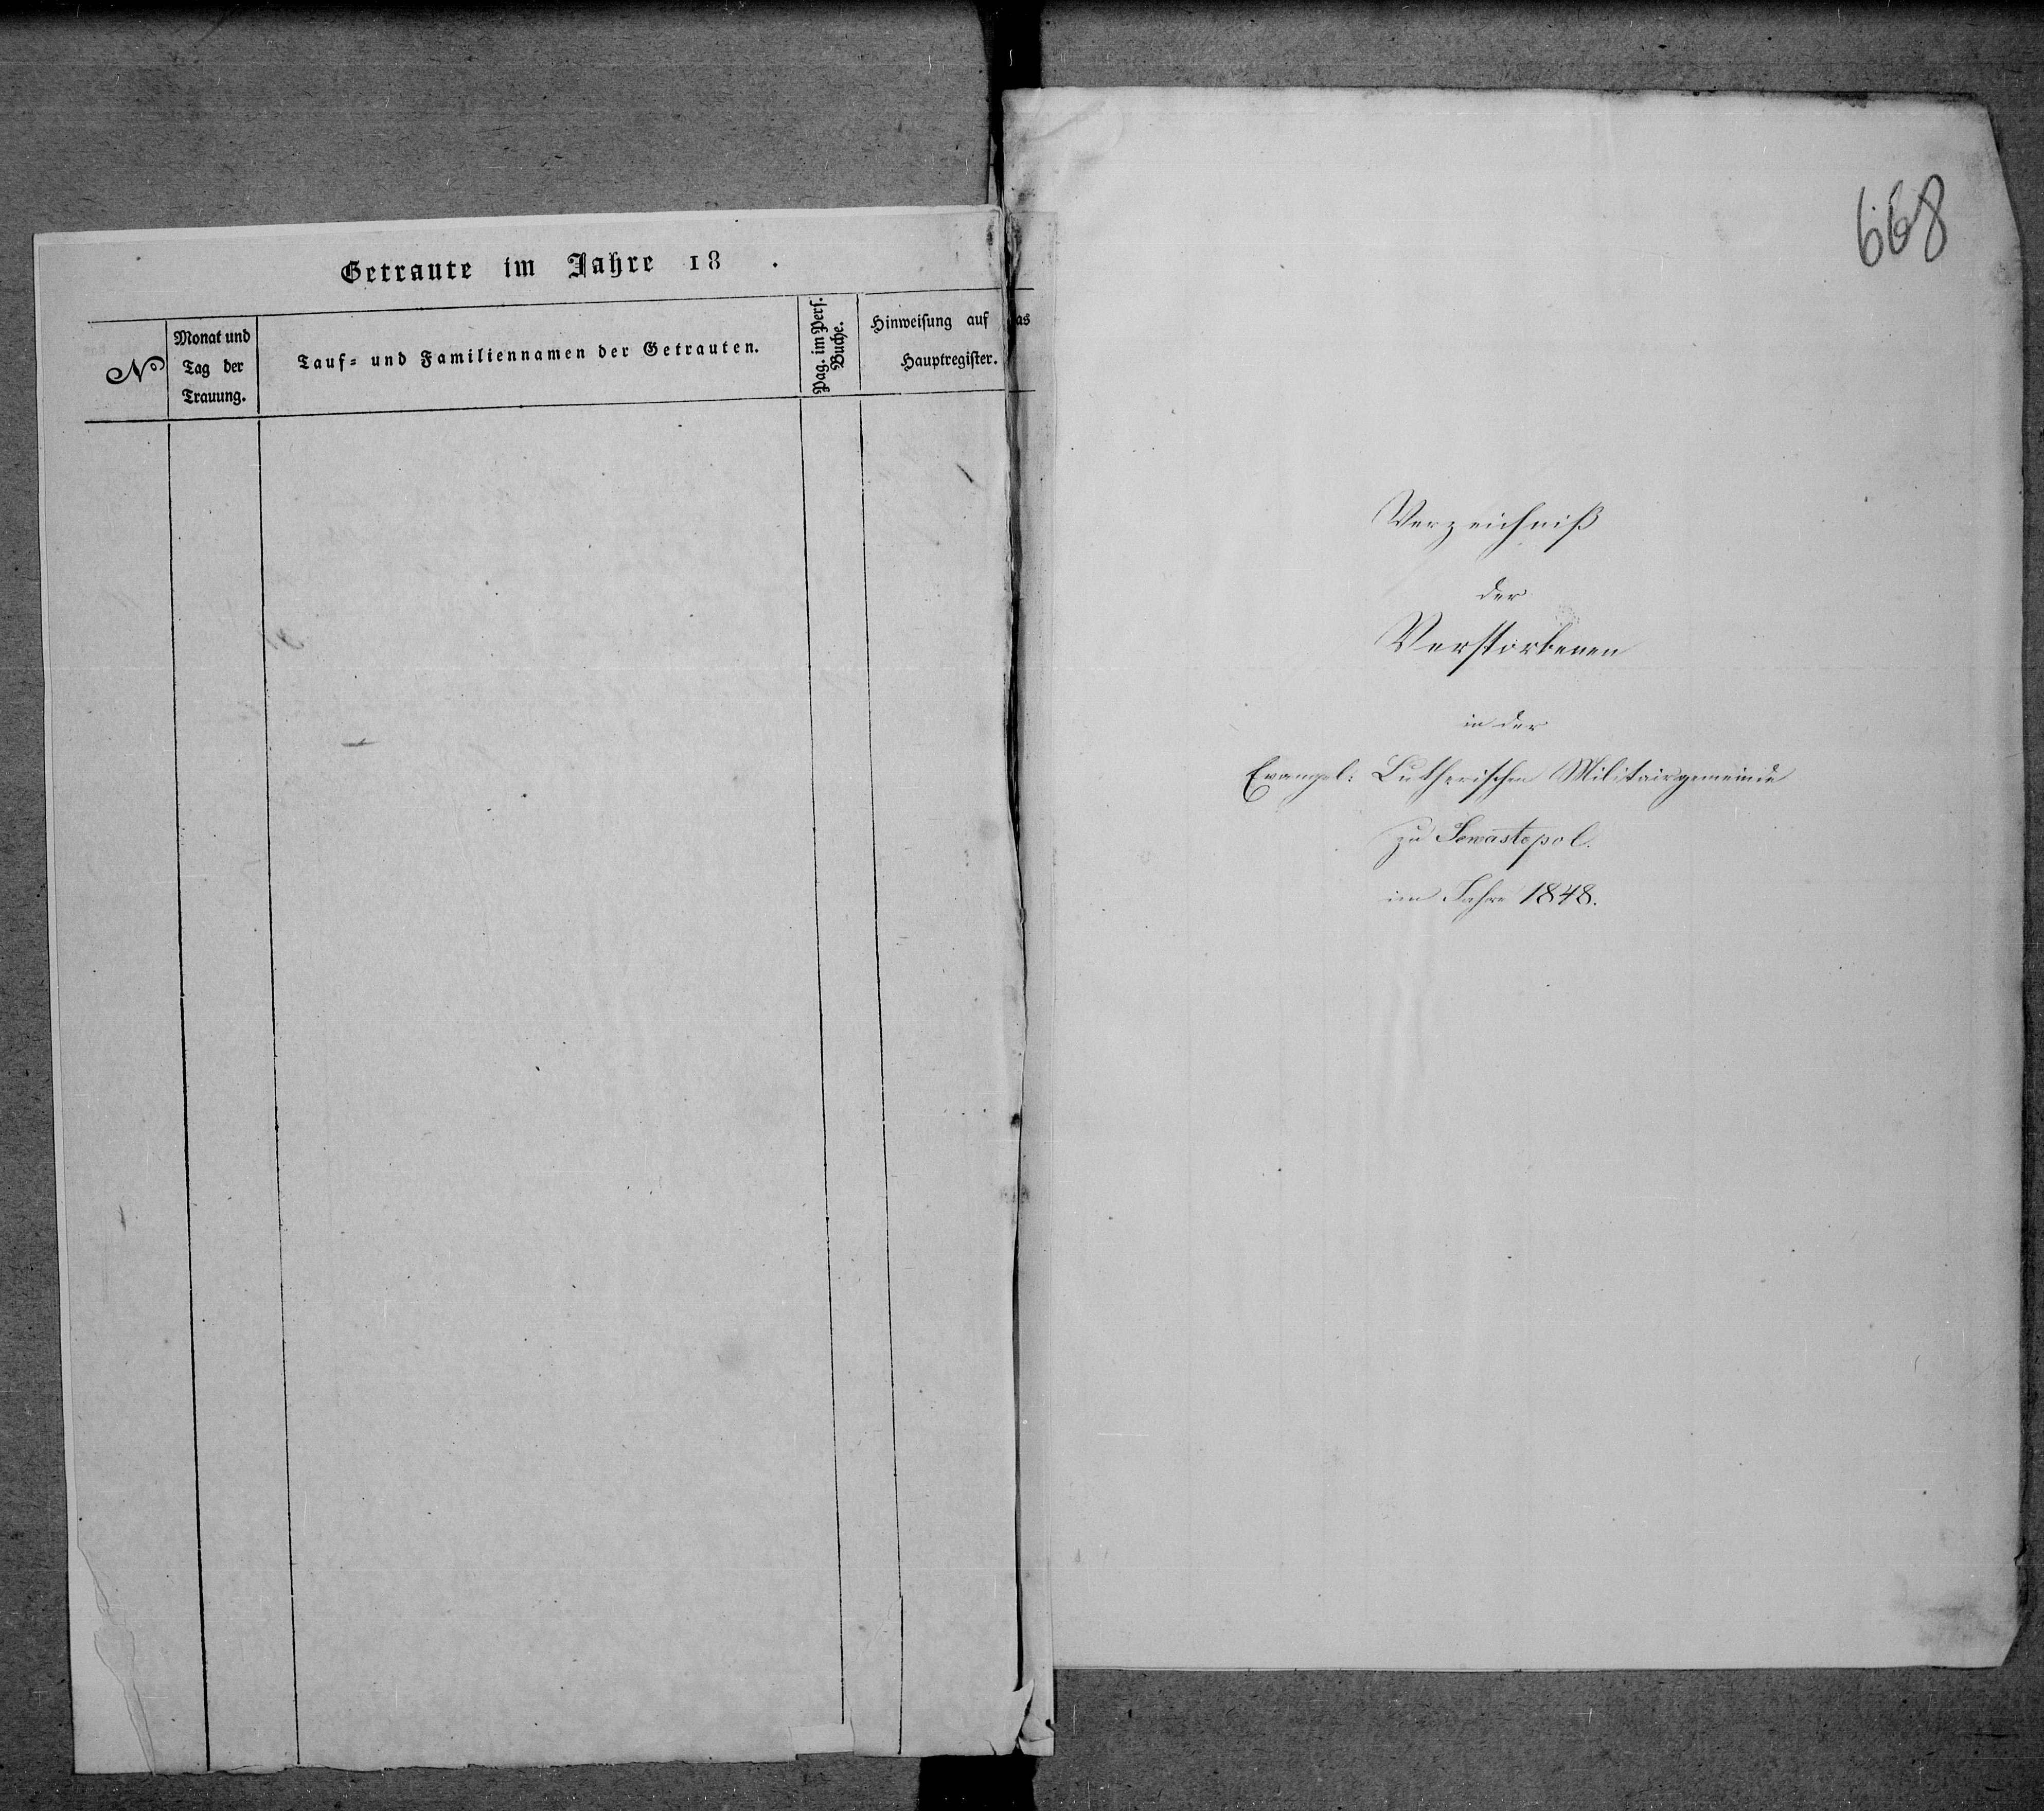 Getraute im Jahre 18 .
№
Monat und
Tag der
Trauung.
Tauf= und Familiennamen der Getrauten.
Pag. im Pers.
Buche.
Hinweisung auf das
Hauptregister.
668
Verzeichniß
der
Verstorbenen
in der
Evangel: Lutherischen Militairgemeinde
zu Sewastopol.
im Jahre 1848.